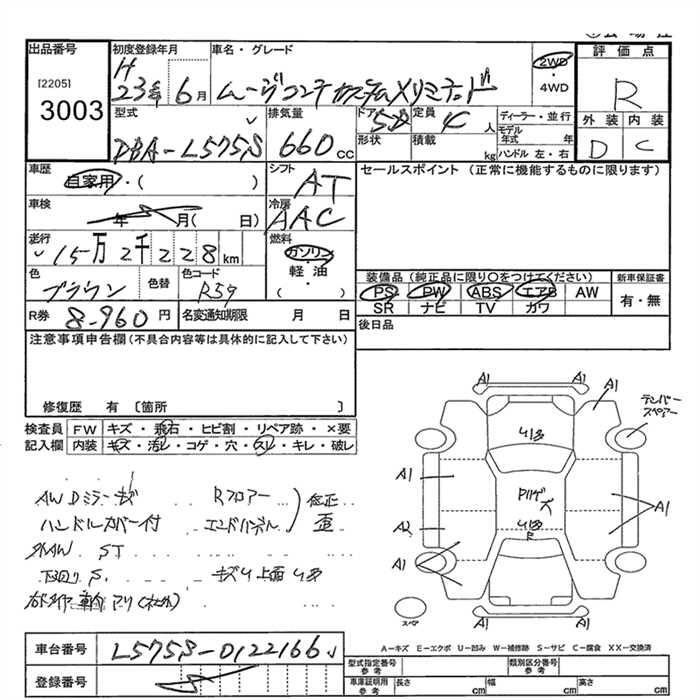 出品番号 初度登録年月 車名・グレード 評価点
[2205] H 23年 6月 ムーヴコンテ カスタムXリミテッド 2WD・4WD R
3003 型式 排気量 ドア 定員 ディーラー・並行 外装 内装
DBA-L575S 660cc 5D 人 モデル年式 年 D C
形状 積載 kg ハンドル 左・右
車歴 シフト セールスポイント (正常に機能するものに限ります)
自家用・( ) AT
車検 年 月( 日) 冷房 AAC
走行 燃料
15万2千228km ガソリン
軽・油
( )
色 色替 色コード 装備品 (純正品に限り○をつけてください) 新車保証書
ブラウン R59 PS PW ABS エアB AW 有・無
SR ナビ TV カワ
R券 8-960円 名変通知期限 月 日 後日品
注意事項申告欄 (不具合内容等は具体的に記入して下さい)
修復歴 有 〔箇所 〕
検査員 FW キズ・飛石・ヒビ割・リペア跡・×要
記入欄 内装 キズ・汚レ・コゲ・穴・スレ・キレ・破レ
AW Dミラーキズ Rフロアー 修正
ハンドルカバー付 エンドパネル 歪
外AW ST
下回りS キズU上面U8
A1 A1 A1 テンパースペアー
A1 A1
A2
A1 A1
A1 A1
スペア
A-キズ E-エクボ U-凹み W-補修跡 S-サビ C-腐食 XX-交換済
車台番号 L575S-0122166
登録番号
型式指定番号 参考 類別区分番号 参考
車庫証明用 参考 長さ cm 幅 cm 高さ cm